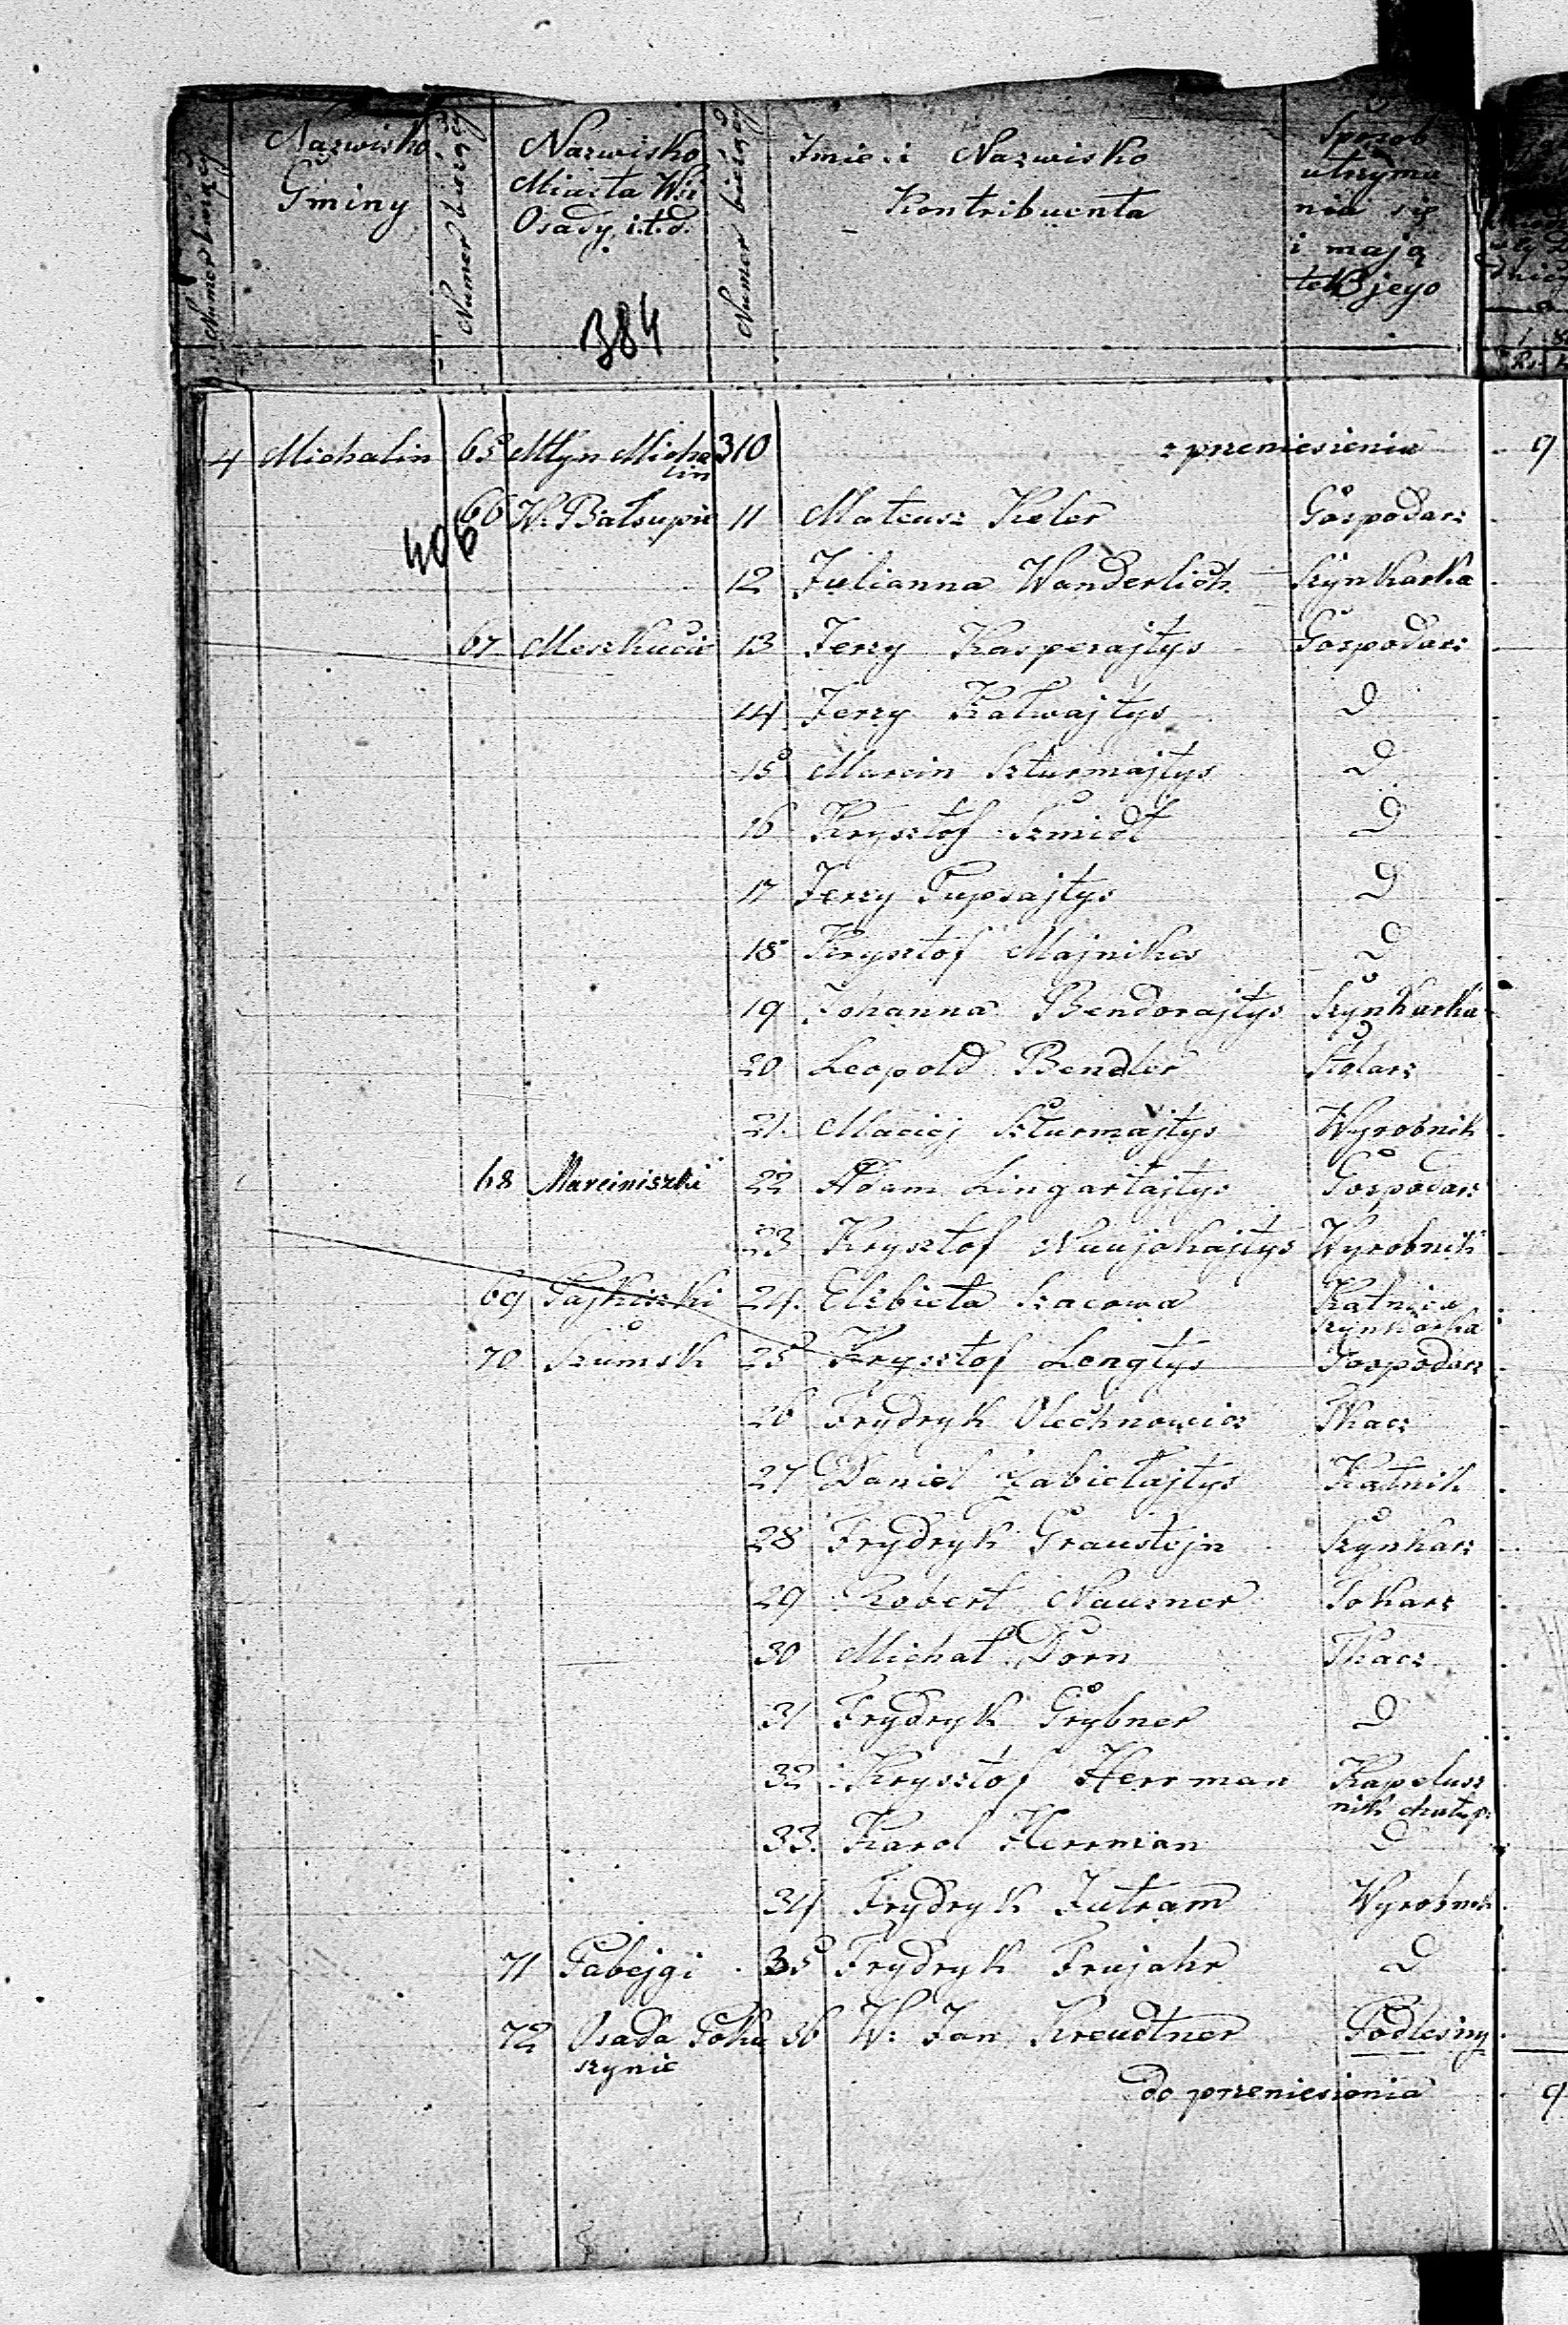 Numer bieżący
Nazwisko Gminy
Numer bieżący
Nazwisko Miasta Wsi Osady i.t.d.
Numer bieżący
Imie i Nazwisko Kontribuenta
Sposob utrzyma nia się i mają tek jego
384
4 Michalin 65 Młyn Micha lin 310 z przeniesienia 9
406
66 W. Batsupie 11 Mateusz Keler Gospodarz
12 Julianna Wanderlich Szynkarka
67 Meszkucie 13 Jerzy Kasperajtys Gospodarz
14 Jerzy Kalwajtys D
15 Marcin Szturmajtys D
16 Krysztof Szmidt D
17 Jerzy Pupsajtys D
18 Krysztof Majnikes D
19 Johanna Bendorajtys Szynkarka
20 Leopold Bendler Stolarz
21 Maciej Szturmajtys Wyrobnik
68 Marciniszki 22 Adam Lingartajtys Gospodarz
23 Krysztof Naujokajtys Wyrobnik
69 Pajkiszki 24 Elzbieta Szacowa Kątnica Szynkarka
70 Szumsk 25 Krysztof Lengtys Gospodarz
26 Frydryk Olechnowicz Tkacz
27 Daniel Zabiełajtys Kątnik
28 Frydryk Graustejn Szynkarz
29 Robert Nauzner Tokarz
30 Michał Dorn Tkacz
31 Frydryk Grybner D
32 Krysztof Herrman Kapelusz nik chałup.
33 Karol Herrman D
34 Frydryk Jutram Wyrobnik
71 Pabejgi 35 Frydryk Frujahr D
72 Osada Poka szynie 36 W: Jan Kreudtner Podleśny
do przeniesienia 9